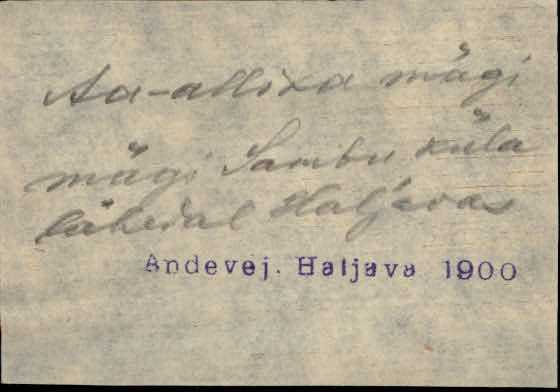 Aa-allika mägi
mägi Sambu küla
lähedal Haljavas
Andevej. Haljava 1900